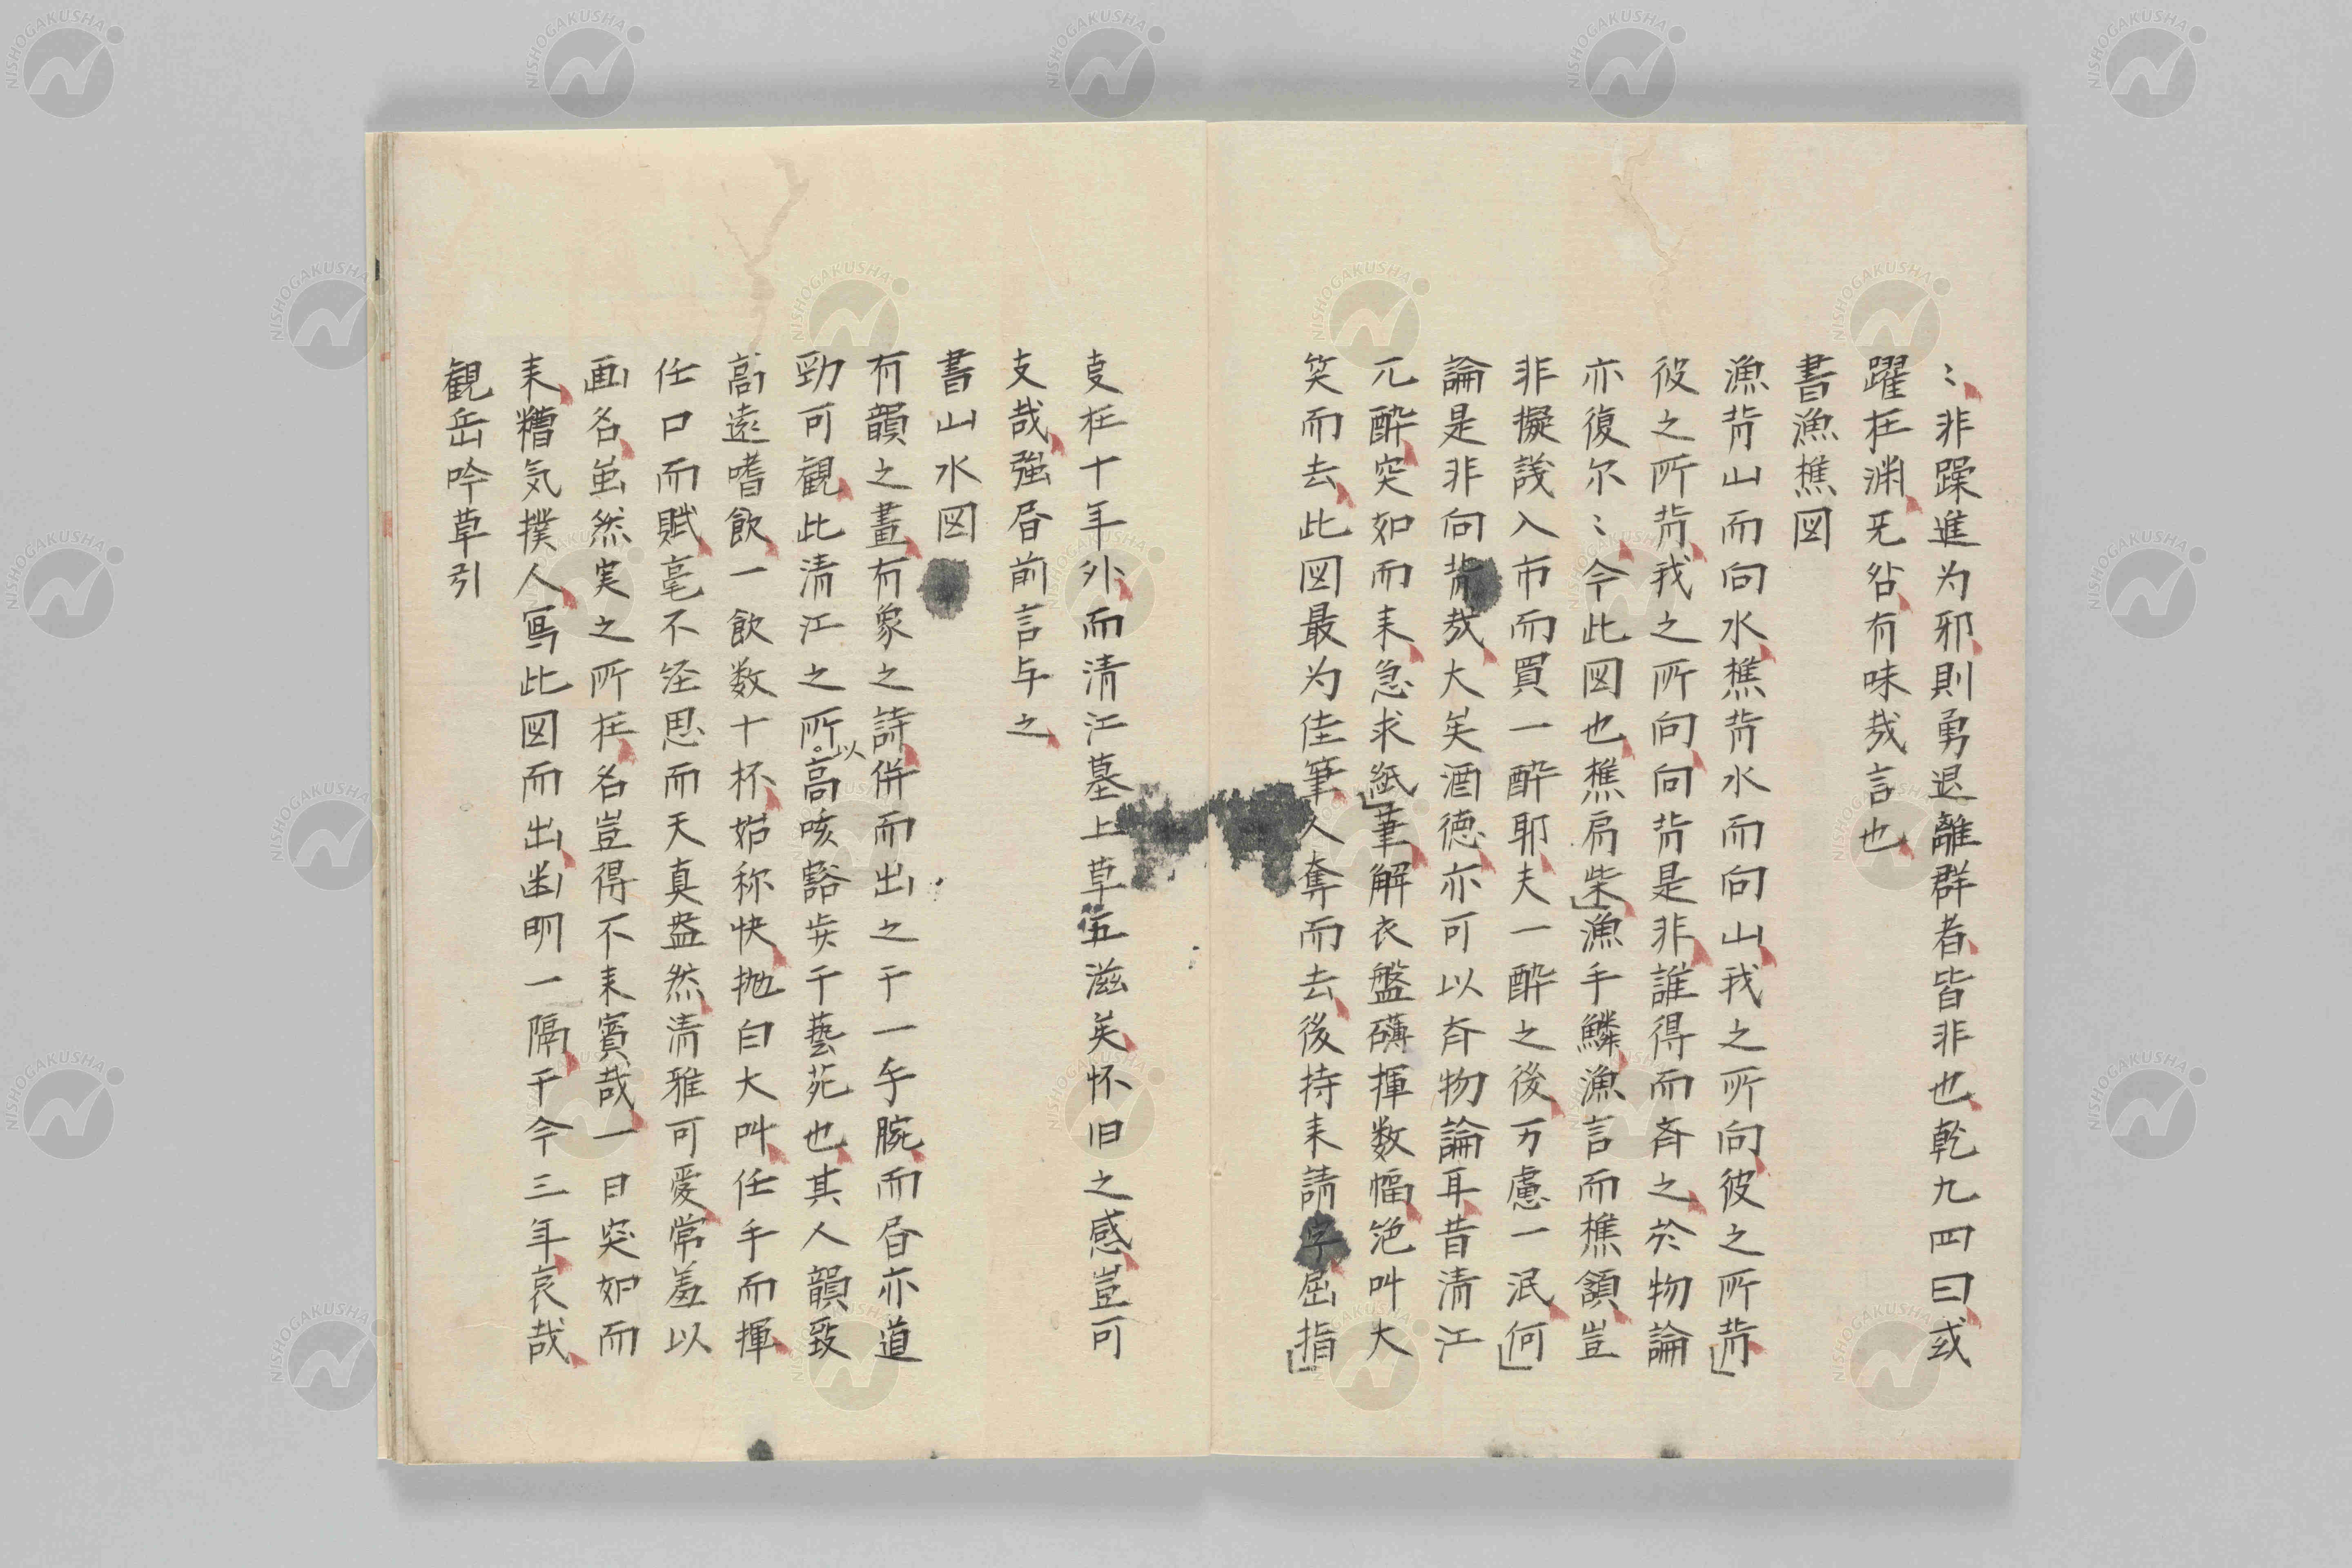 〻非躁進为邪則勇退離群者皆非也乾九四曰或
躍在渊无咎有味哉言也
書漁樵図
漁背山而向水樵背水而向山我之所向彼之所背
彼之所背我之所向向背是非誰得而斉之於物論
亦復尓〻今此図也樵肩柴漁手鱗漁言而樵頷豈
非擬議入市而買一酔耶夫一酔之後万慮一泯何
論是非向背哉大矣酒徳亦可以斉物論耳昔清江
兀酔突如而来急求紙筆解衣盤礴揮数幅絶叫大
笑而去此図最为佳筆人奪而去後持来請字屈指
支在十年外而清江墓上草五滋矣怀旧之感豈可
支哉強昏前言与之
書山水図
有韻之畫有象之詩併而出之于一手腕而昏亦道
勁可観此清江之所以高咳豁歩于藝苑也其人韻致
高遠嗜飲一飲数十杯始称快抛白大叫任手而揮
任口而賦毫不経思而天真盎然清雅可愛常羞以
画名虽然実之所在名豈得不来賓哉一日突如而
来糟気撲人写此図而出幽明一隔于今三年哀哉
観岳吟草引